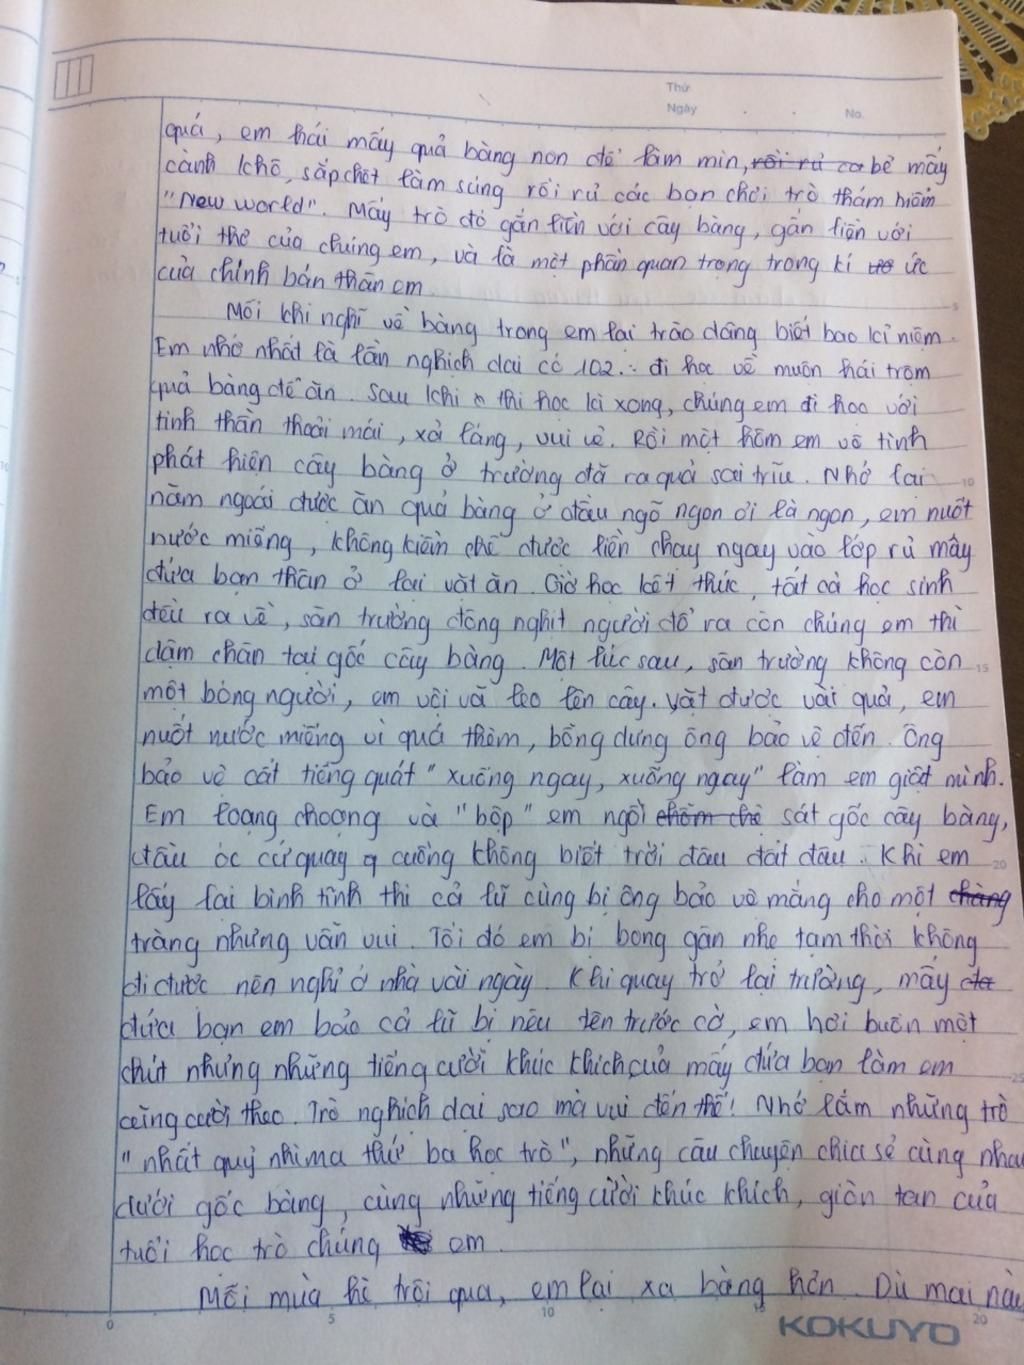 Thứ
Ngày . . No.
quá, em hái mấy quả bàng non để làm mìn, rồi rủ ca bẻ mấy
cành khô, sắp chết làm súng rồi rủ các bạn chơi trò thám hiểm
"New world". Mấy trò đó gắn liền với cây bàng, gắn liền với
tuổi thơ của chúng em, và là một phần quan trọng trong kí ức
của chính bản thân em
Mỗi khi nghĩ về bàng trong em lại trào dâng biết bao kỉ niệm.
Em nhớ nhất là lần nghịch dại có 102: đi học về muộn hái trộm
quả bàng để ăn. Sau khi thi học kì xong, chúng em đi học với
tinh thần thoải mái, xả láng, vui vẻ. Rồi một hôm em vô tình
phát hiện cây bàng ở trường đã ra quả sai trĩu. Nhớ lại
năm ngoái được ăn quả bàng ở đầu ngõ ngon ơi là ngon, em nuốt
nước miếng, không kiềm chế được liền chạy ngay vào lớp rủ mấy
đứa bạn thân ở lại vặt ăn. Giờ học kết thúc, tất cả học sinh
đều ra về, sân trường đông nghịt người đổ ra còn chúng em thì
dậm chân tại gốc cây bàng. Một lúc sau, sân trường không còn
một bóng người, em vội vã leo lên cây. Vặt được vài quả, em
nuốt nước miếng vì quá thèm, bỗng dưng ông bảo vệ đến. Ông
bảo vệ cất tiếng quát "xuống ngay, xuống ngay" làm em giật mình.
Em loạng choạng và "bộp" em ngồi chồm chễ sát gốc cây bàng,
đầu óc cứ quay cuồng không biết trời đâu đất đâu. Khi em
lấy lại bình tĩnh thì cả lũ cùng bị ông bảo vệ mắng cho một chàng
tràng nhưng vẫn vui. Tối đó em bị bong gân nhẹ tạm thời không
đi được nên nghỉ ở nhà vài ngày. Khi quay trở lại trường, mấy đa
đứa bạn em bảo cả lũ bị nêu tên trước cờ, em hơi buồn một
chút nhưng những tiếng cười khúc khích của mấy đứa bạn làm em
cũng cười theo. Trò nghịch dại sao mà vui đến thế! Nhớ lắm những trò
"nhất quỷ nhì ma thứ ba học trò", những câu chuyện chia sẻ cùng nhau
dưới gốc bàng, cùng những tiếng cười khúc khích, giòn tan của
tuổi học trò chúng em.
Mỗi mùa hè trôi qua, em lại xa bàng hơn. Dù mai này
5
10
15
20
25
0 5 10 15 20
KOKUYO